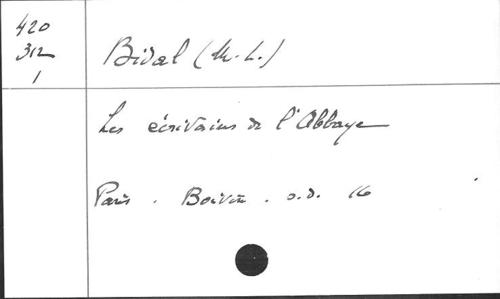 420
312
1
Bidal (M.-L.)
Les écrivains de l'Abbaye
Paris. Boivin. s.d. 16